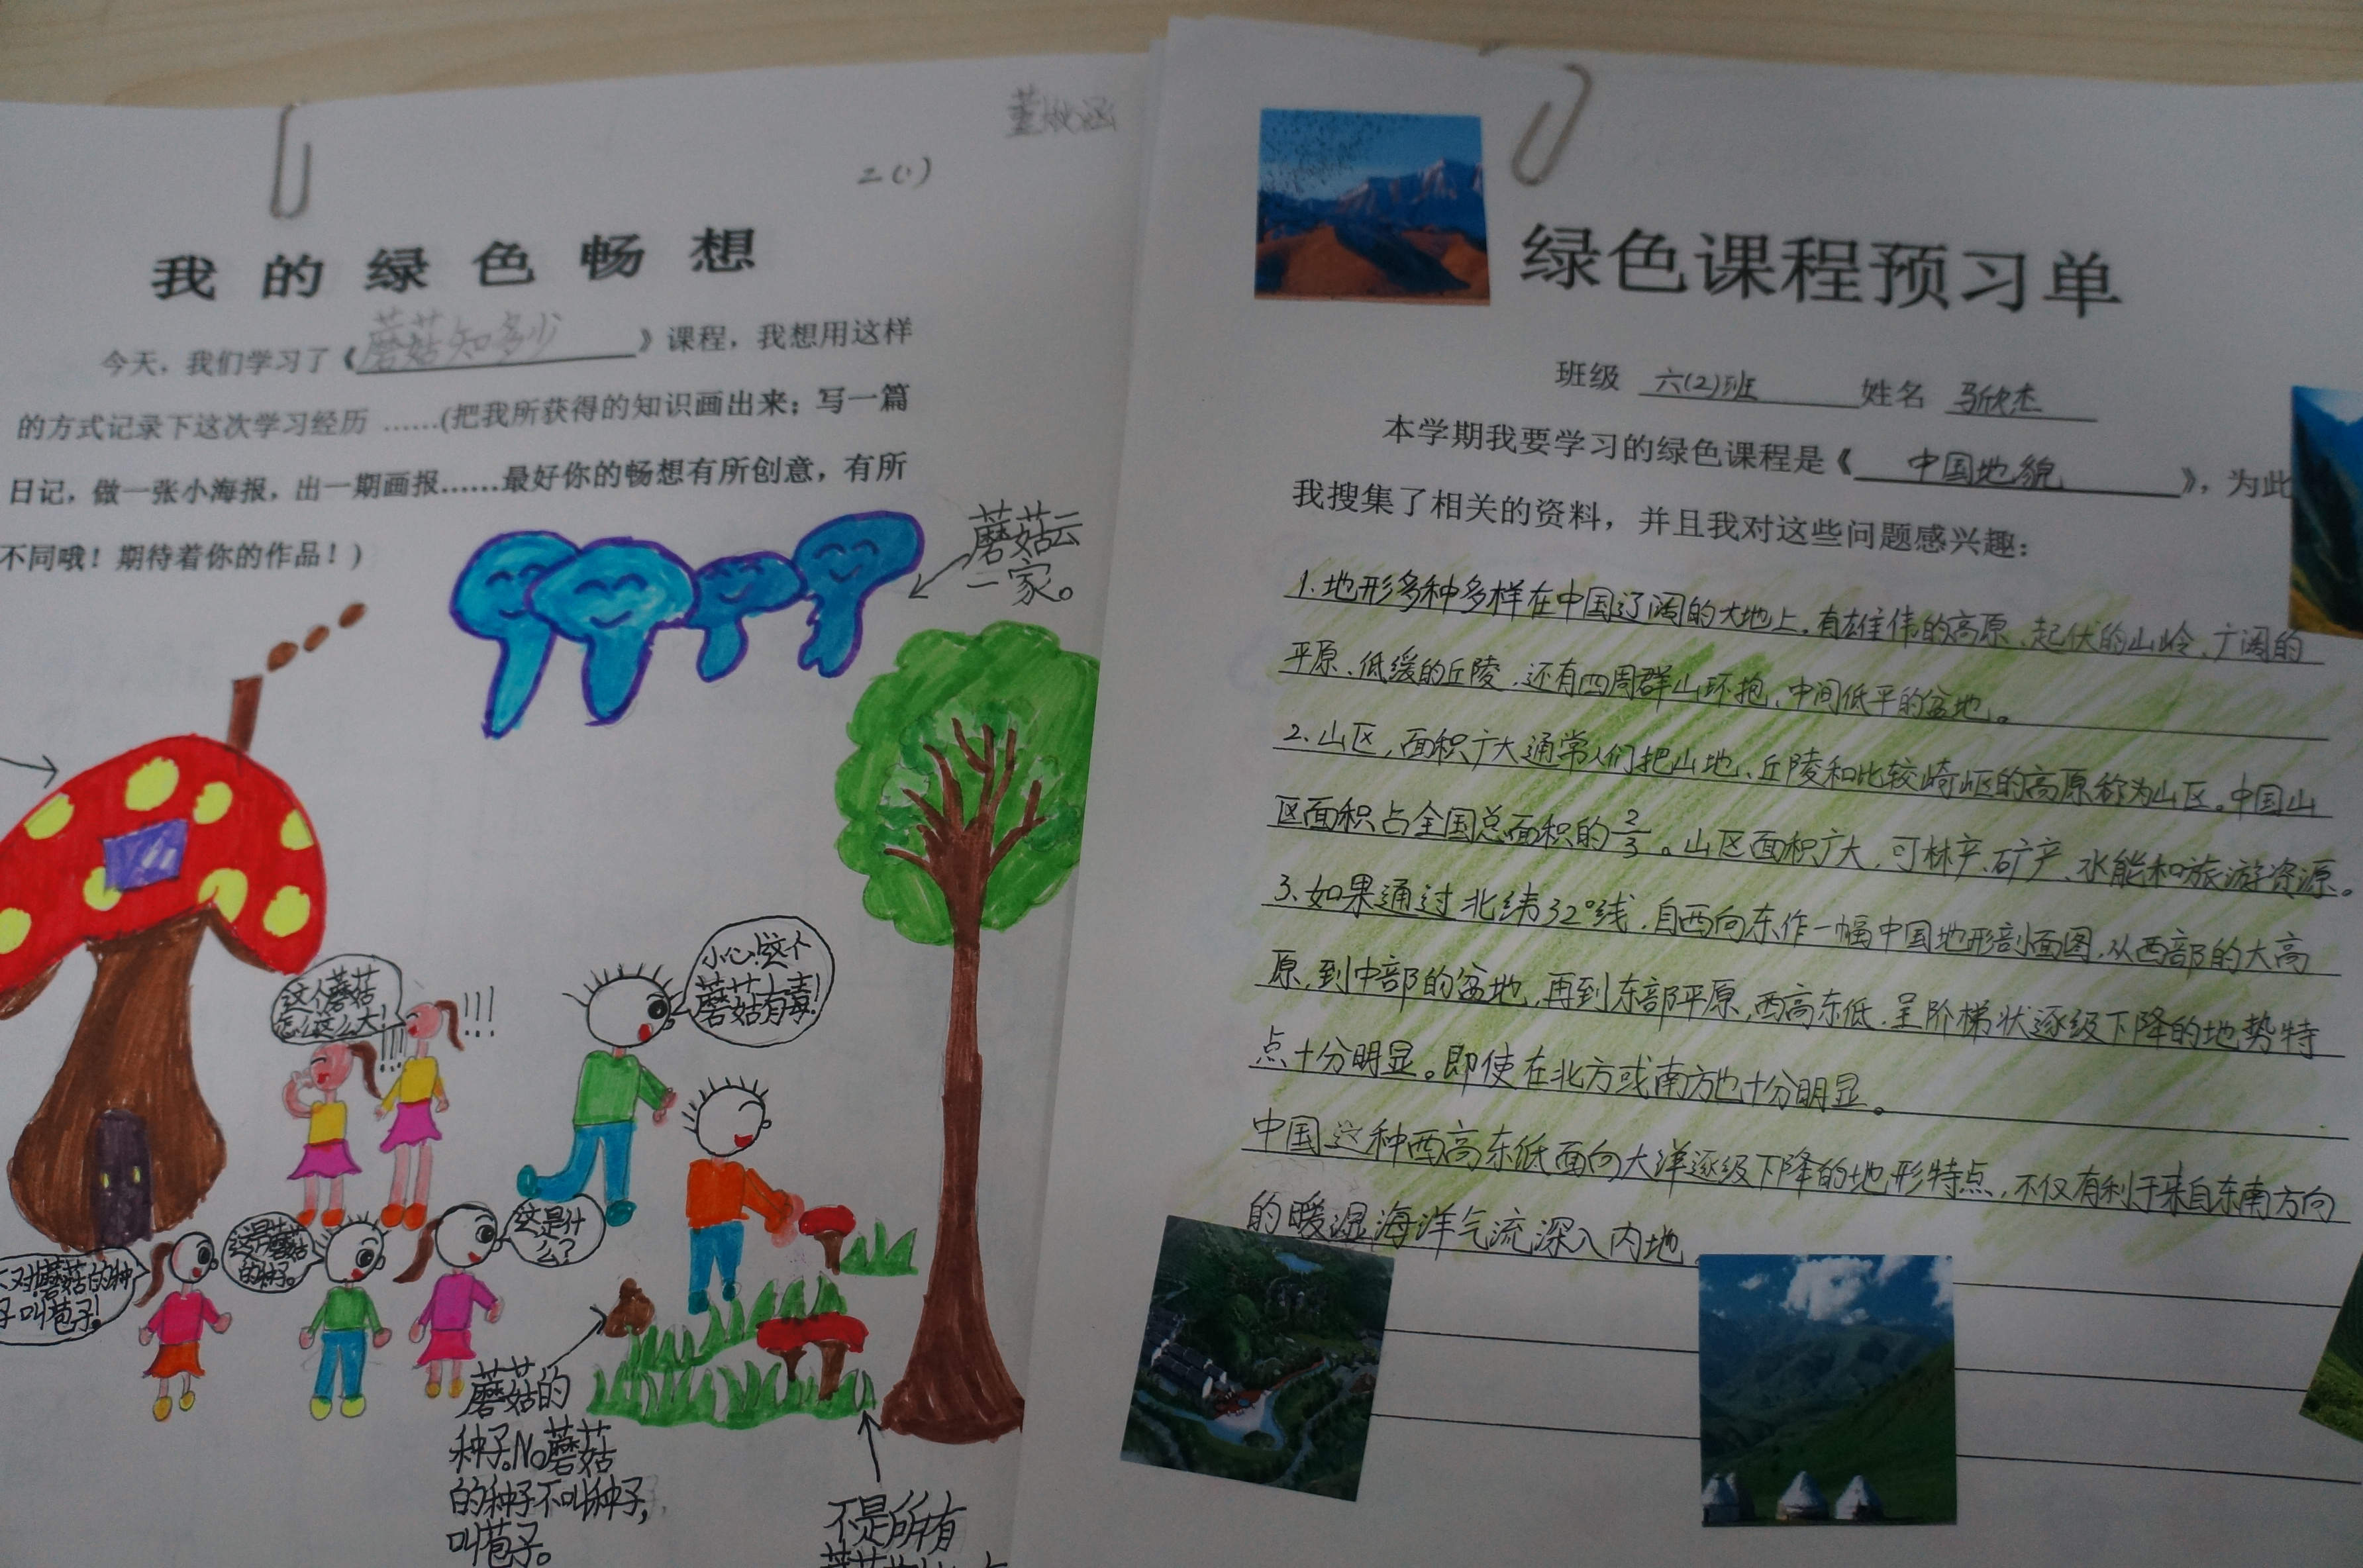 二(1)
我的绿色畅想
今天，我们学习了《蘑菇知多少》课程，我想用这样
的方式记录下这次学习经历……(把我所获得的知识画出来；写一篇
日记，做一张小海报，出一期画报……最好你的畅想有所创意，有所
不同哦！期待着你的作品！)
蘑菇云
一家。
小心！这个
蘑菇有毒！
这个蘑菇
怎么这么大！
!!!
!!!
这是什
么？
这是蘑菇
的种子。
不对！蘑菇的种
子叫苞子！
蘑菇的
种子。No蘑菇
的种子不叫种子，
叫苞子。
不是所有
绿色课程预习单
班级 六(2)班 姓名 马欣杰
本学期我要学习的绿色课程是《中国地貌》，为此
我搜集了相关的资料，并且我对这些问题感兴趣：
1.地形多种多样在中国辽阔的大地上，有雄伟的高原、起伏的山岭、广阔的
平原、低缓的丘陵，还有四周群山环抱、中间低平的盆地。
2.山区，面积广大通常人们把山地、丘陵和比较崎岖的高原称为山区。中国山
区面积占全国总面积的2/3。山区面积广大，可林产、矿产、水能和旅游资源。
3.如果通过北纬32°线，自西向东作一幅中国地形剖面图，从西部的大高
原，到中部的盆地，再到东部平原，西高东低，呈阶梯状逐级下降的地势特
点十分明显。即使在北方或南方也十分明显。
中国这种西高东低面向大洋逐级下降的地形特点，不仅有利于来自东南方向
的暖湿海洋气流深入内地